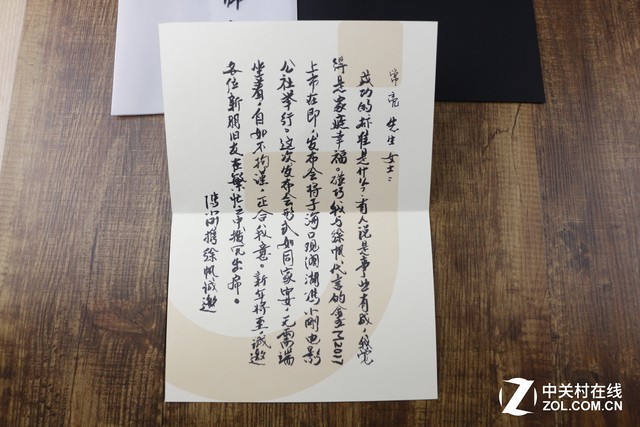 常亮 先生 女士：
成功的标准是什么？有人说是事业有成，我觉
得是家庭幸福。碰巧我与徐帆代言的金立M2017
上市在即，发布会将于海口观澜湖冯小刚电影
公社举行。这次发布会形式如同家宴，无需端
坐着，自如不拘谨，正合我意。新年将至，诚邀
各位新朋旧友在繁忙中拨冗出席。
冯小刚携徐帆诚邀
中关村在线
ZOL.COM.CN